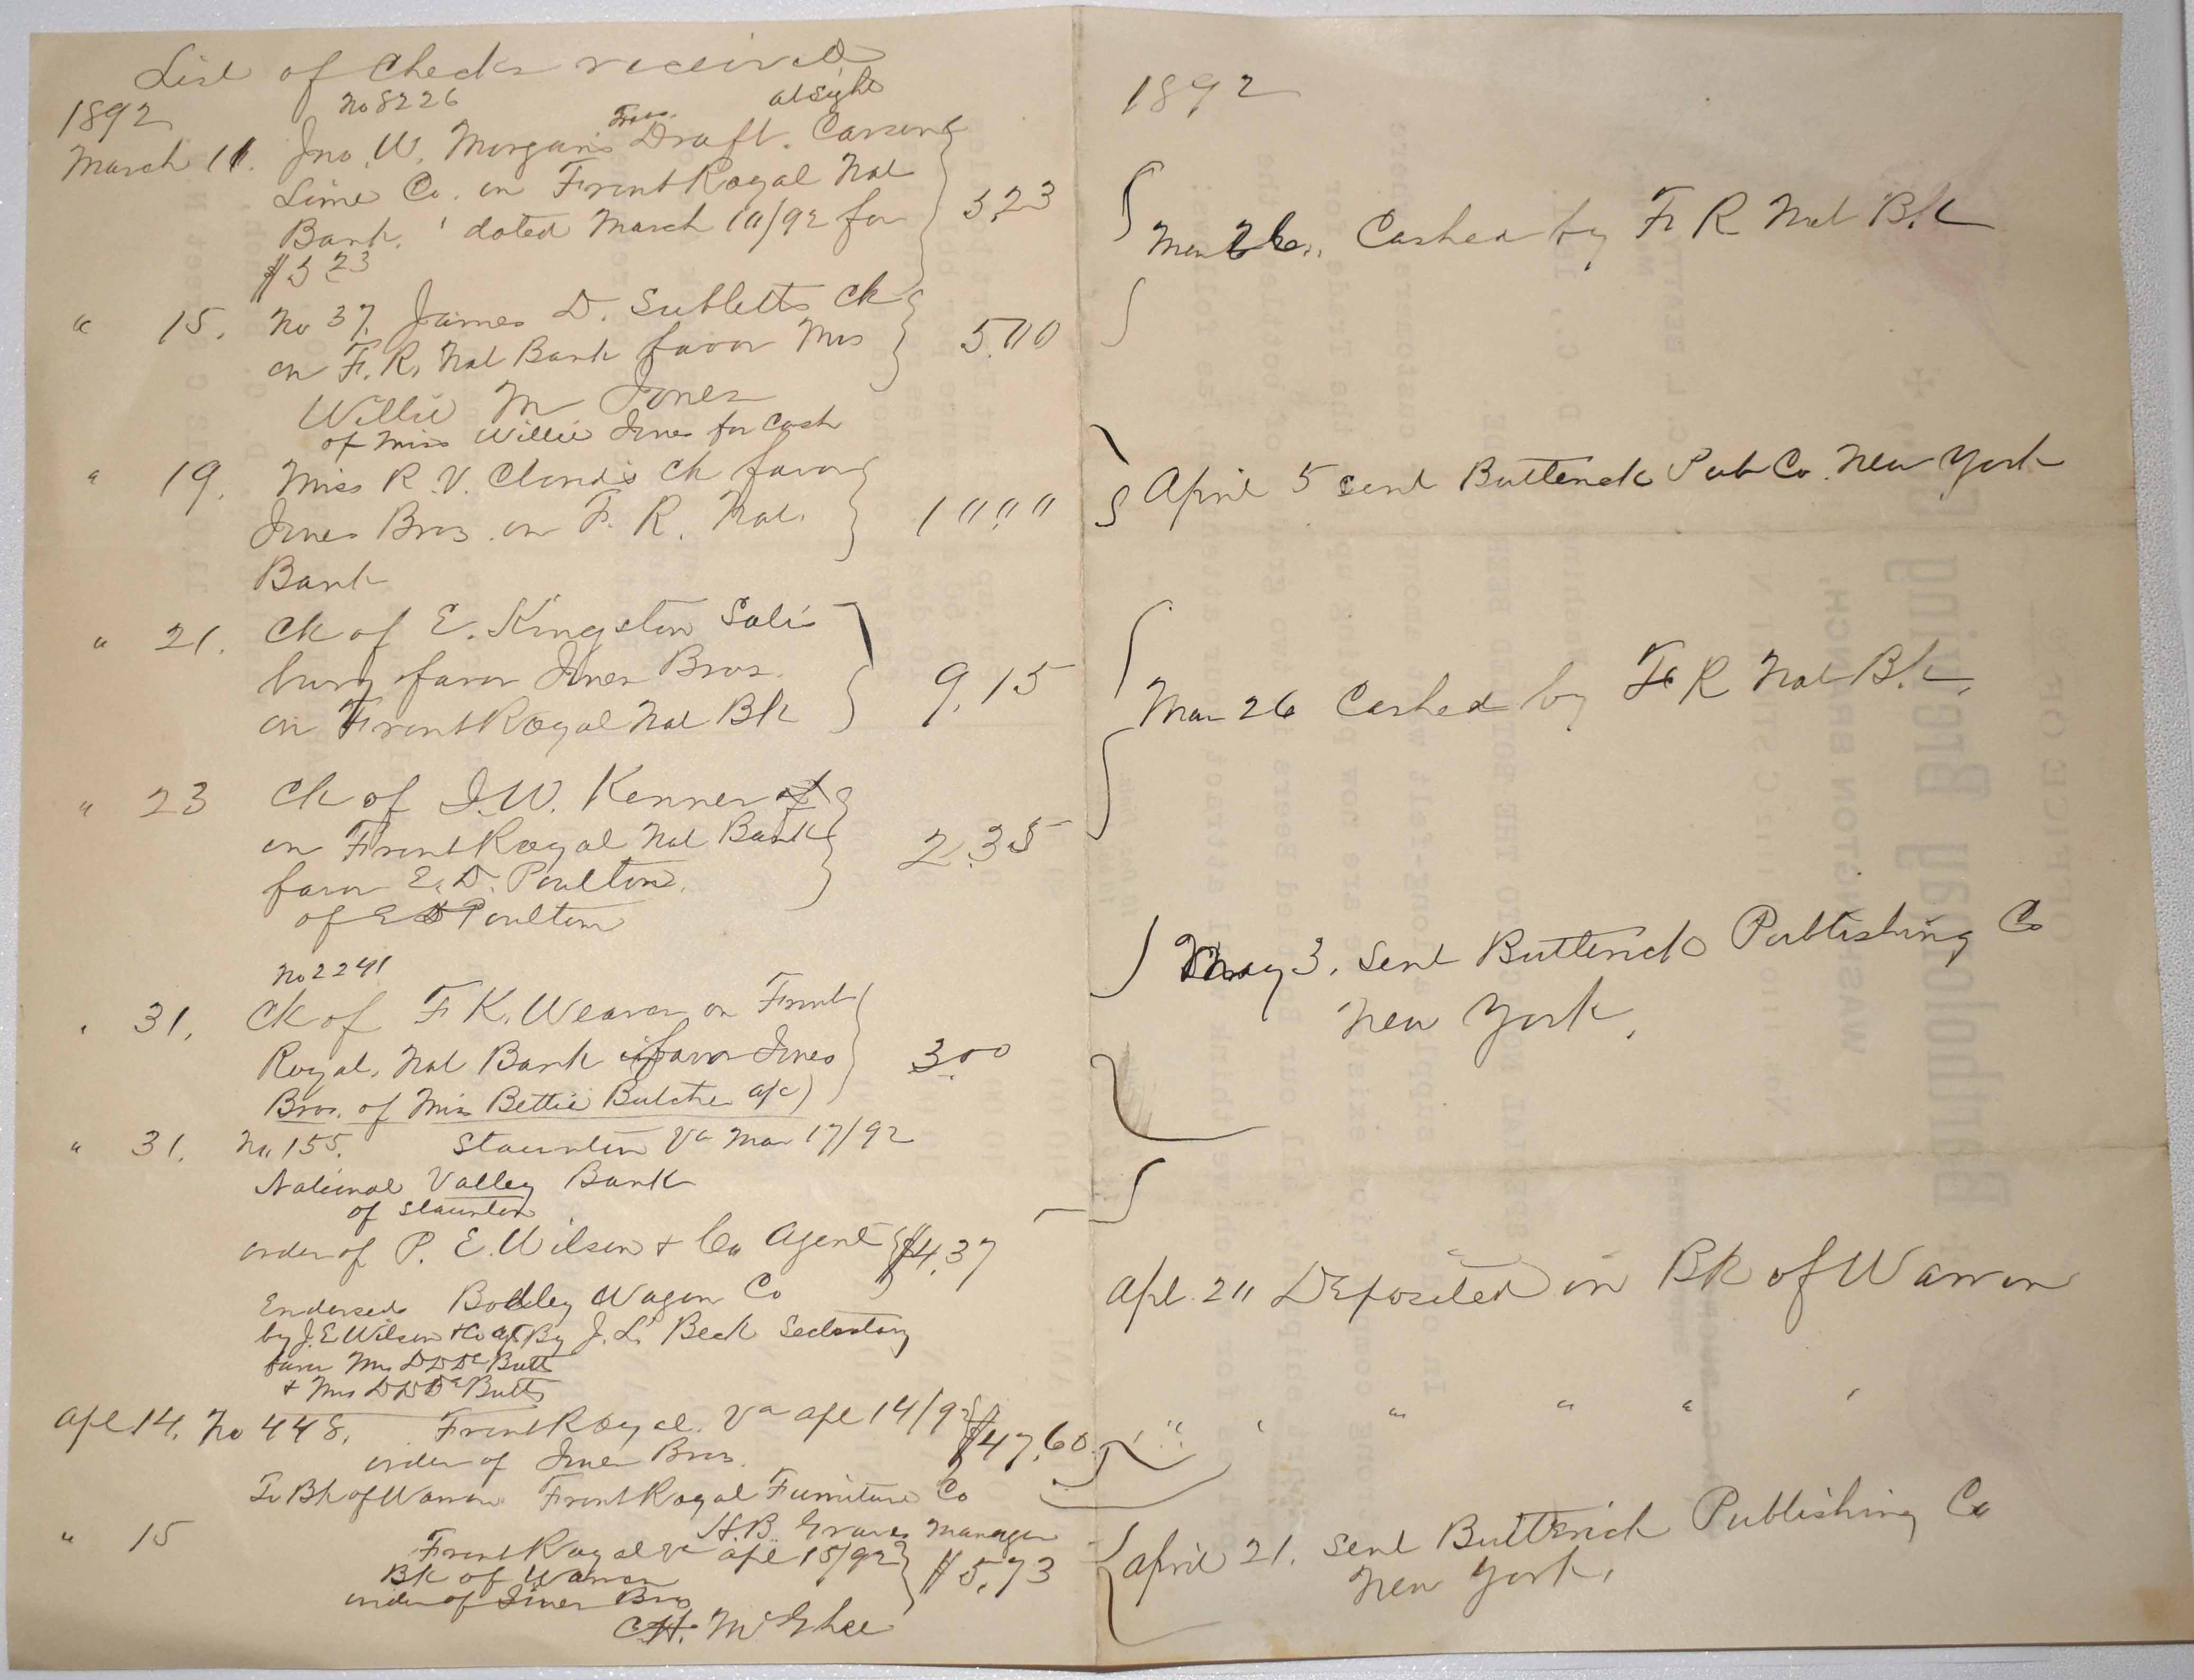 List of Checks received
1892
No 8226
at sight
March 11. Jno. W. Morgan's Draft. Carson
Lime Co. on Front Royal Nat
Bank. dated March 10/92 for
$3 23
3,23
" 15. No 37. James D. Subletts Ck
on F. R. Nat Bank favor Miss
Willie M Jones
of Miss Willie Jones for Cash
5.00
" 19. Miss R. V. Cloud's Ck favor
Jones Bros. on F. R. Nat.
Bank
1 "" ""
" 21. Ck of E. Kingston Salis
bury favor Jones Bros.
on Front Royal Nat Bk
9.15
" 23 Ck of I. W. Kenner
on Front Royal Nat Bank
favor E. D. Poulton.
of E D Poulton
2.35
No 2241
" 31. Ck of F K. Weaver on Front
Royal. Nat Bank favor Jones
Bros. of Miss Bettie Butcher a/c)
3.00
" 31. No 155. Staunton Va Mar 17/92
National Valley Bank
of Staunton
order of P. E. Wilson & Co Agent $4.37
Endorsed Bodley Wagon Co
by J. E Wilson & Co By J. L. Beck Secretary
favor Mrs D D De Butts
& Mrs D D De Butts
Apl 14. No 448. Front Royal. Va apl 14/92 $47.60
order of Jones Bros.
To Bk of Warren Front Royal Furniture Co
H. B. Graves Manager
" 15 Front Royal Va apl 15/92 $5.73
Bk of Warren
order of Jones Bros
C H. McGhee
1892
Mar 26., Cashed by F R Nat Bk
April 5 sent Butterick Pub Co. New York
Mar 26 Cashed by F R Nat Bk.
May 3. Sent Butterick Publishing Co
New York.
Apl. 20 Deposited in Bk of Warren
" " " " "
April 21. Sent Butterick Publishing Co
New York.